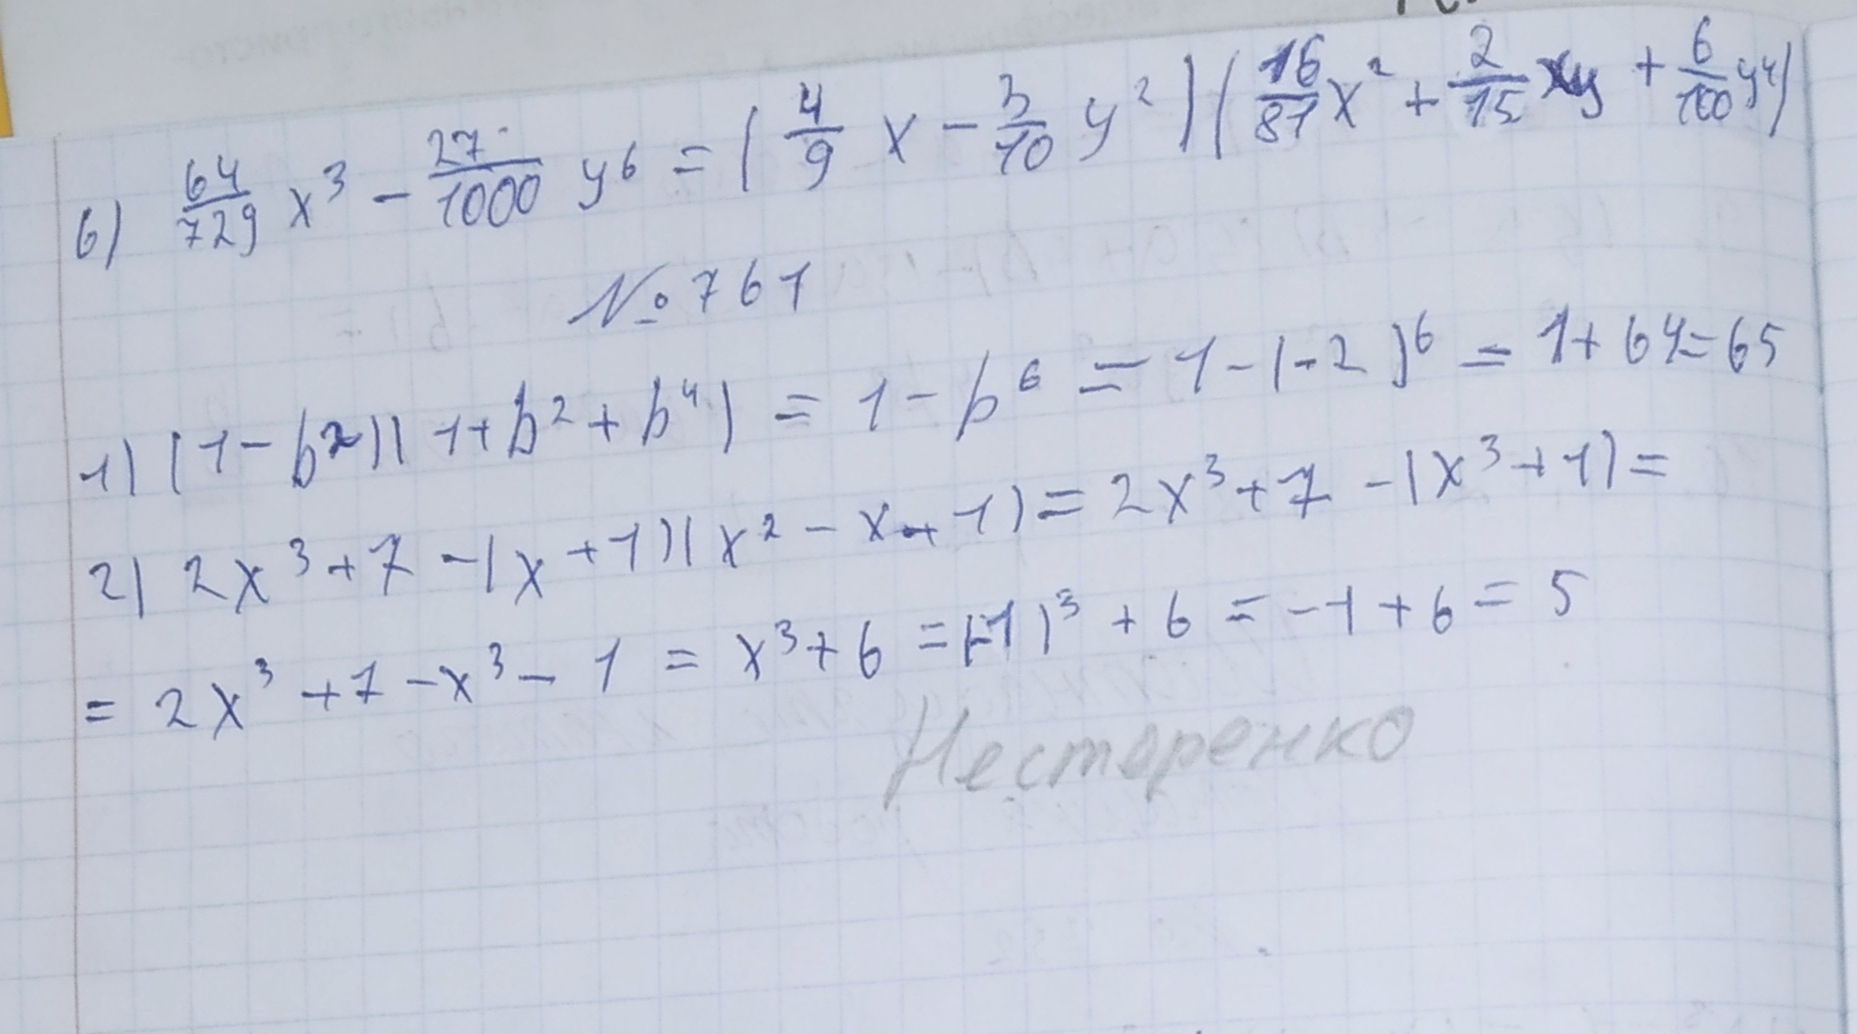 6) 64/729 x³ - 27/1000 y⁶ = (4/9 x - 3/10 y²)(16/81 x² + 2/15 xy + 6/100 y⁴)
№ 761
1) (1 - b²)(1 + b² + b⁴) = 1 - b⁶ = 1 - (-2)⁶ = 1 + 64 = 65
2) 2x³ + 7 - (x + 1)(x² - x + 1) = 2x³ + 7 - (x³ + 1) =
= 2x³ + 7 - x³ - 1 = x³ + 6 = (-1)³ + 6 = -1 + 6 = 5
Нестеренко